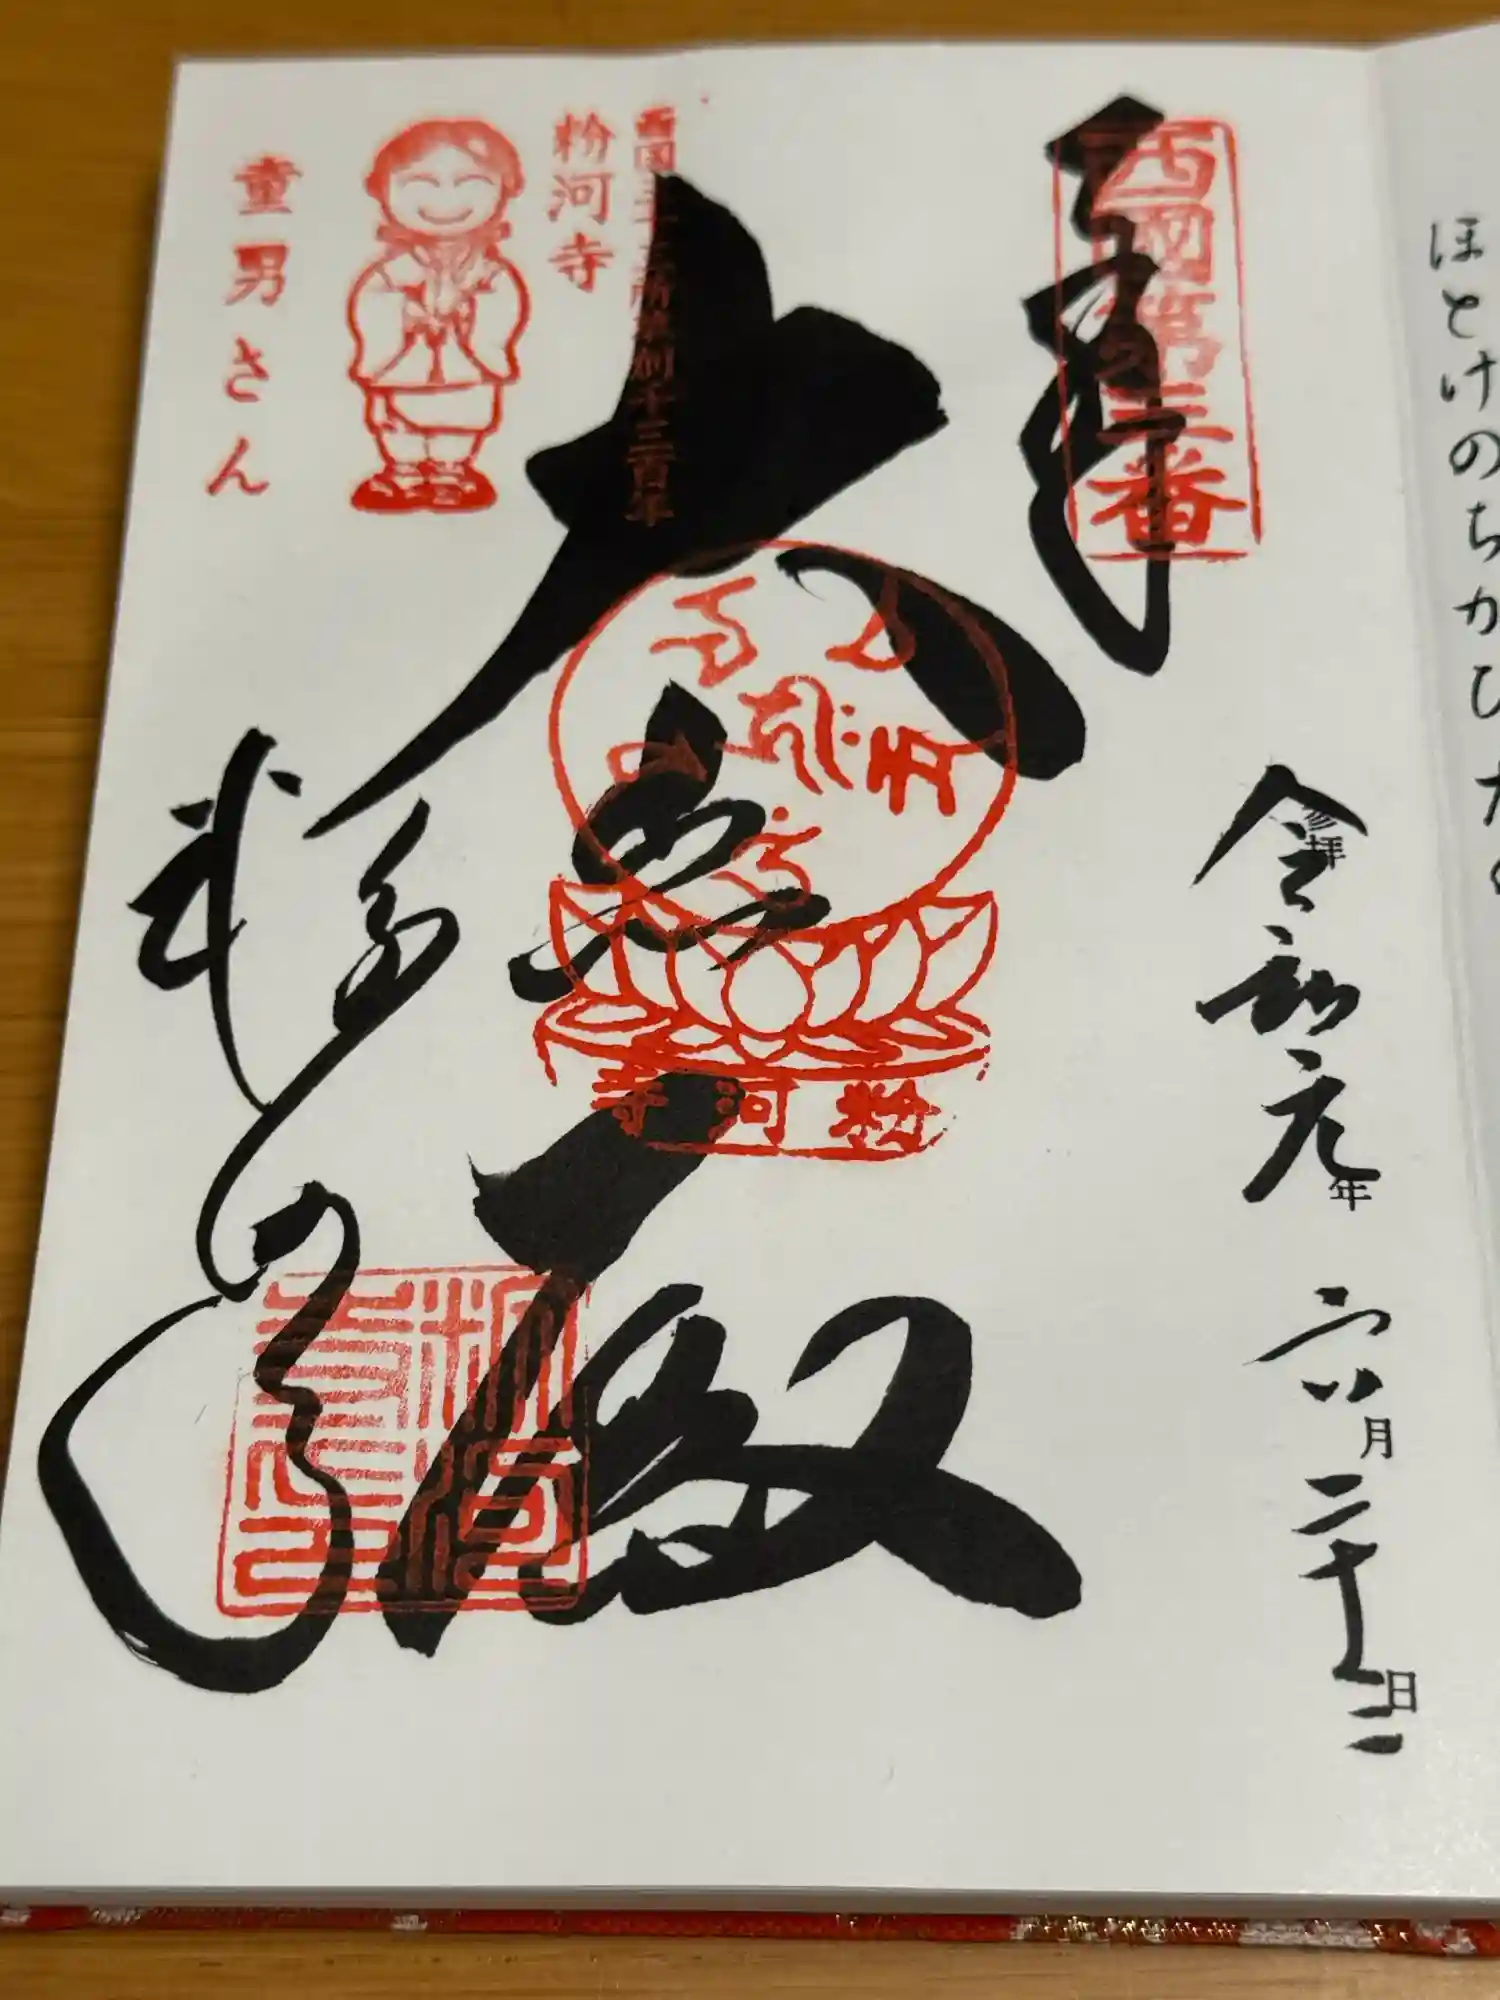 ほとけのちかひた
西國第三番
奉拝
参拝
令和元年
六月
二十二日
大悲殿
粉河寺
西国三十三所草創千三百年
粉河寺
童男さん
粉河寺